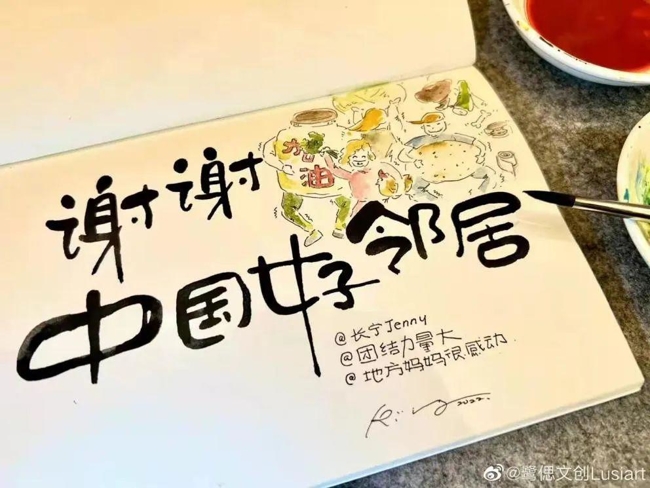 加油
谢谢
中国好邻居
@长宁Jenny
@团结力量大
@地方妈妈很感动
2022.
@鹭偲文创Lusiart